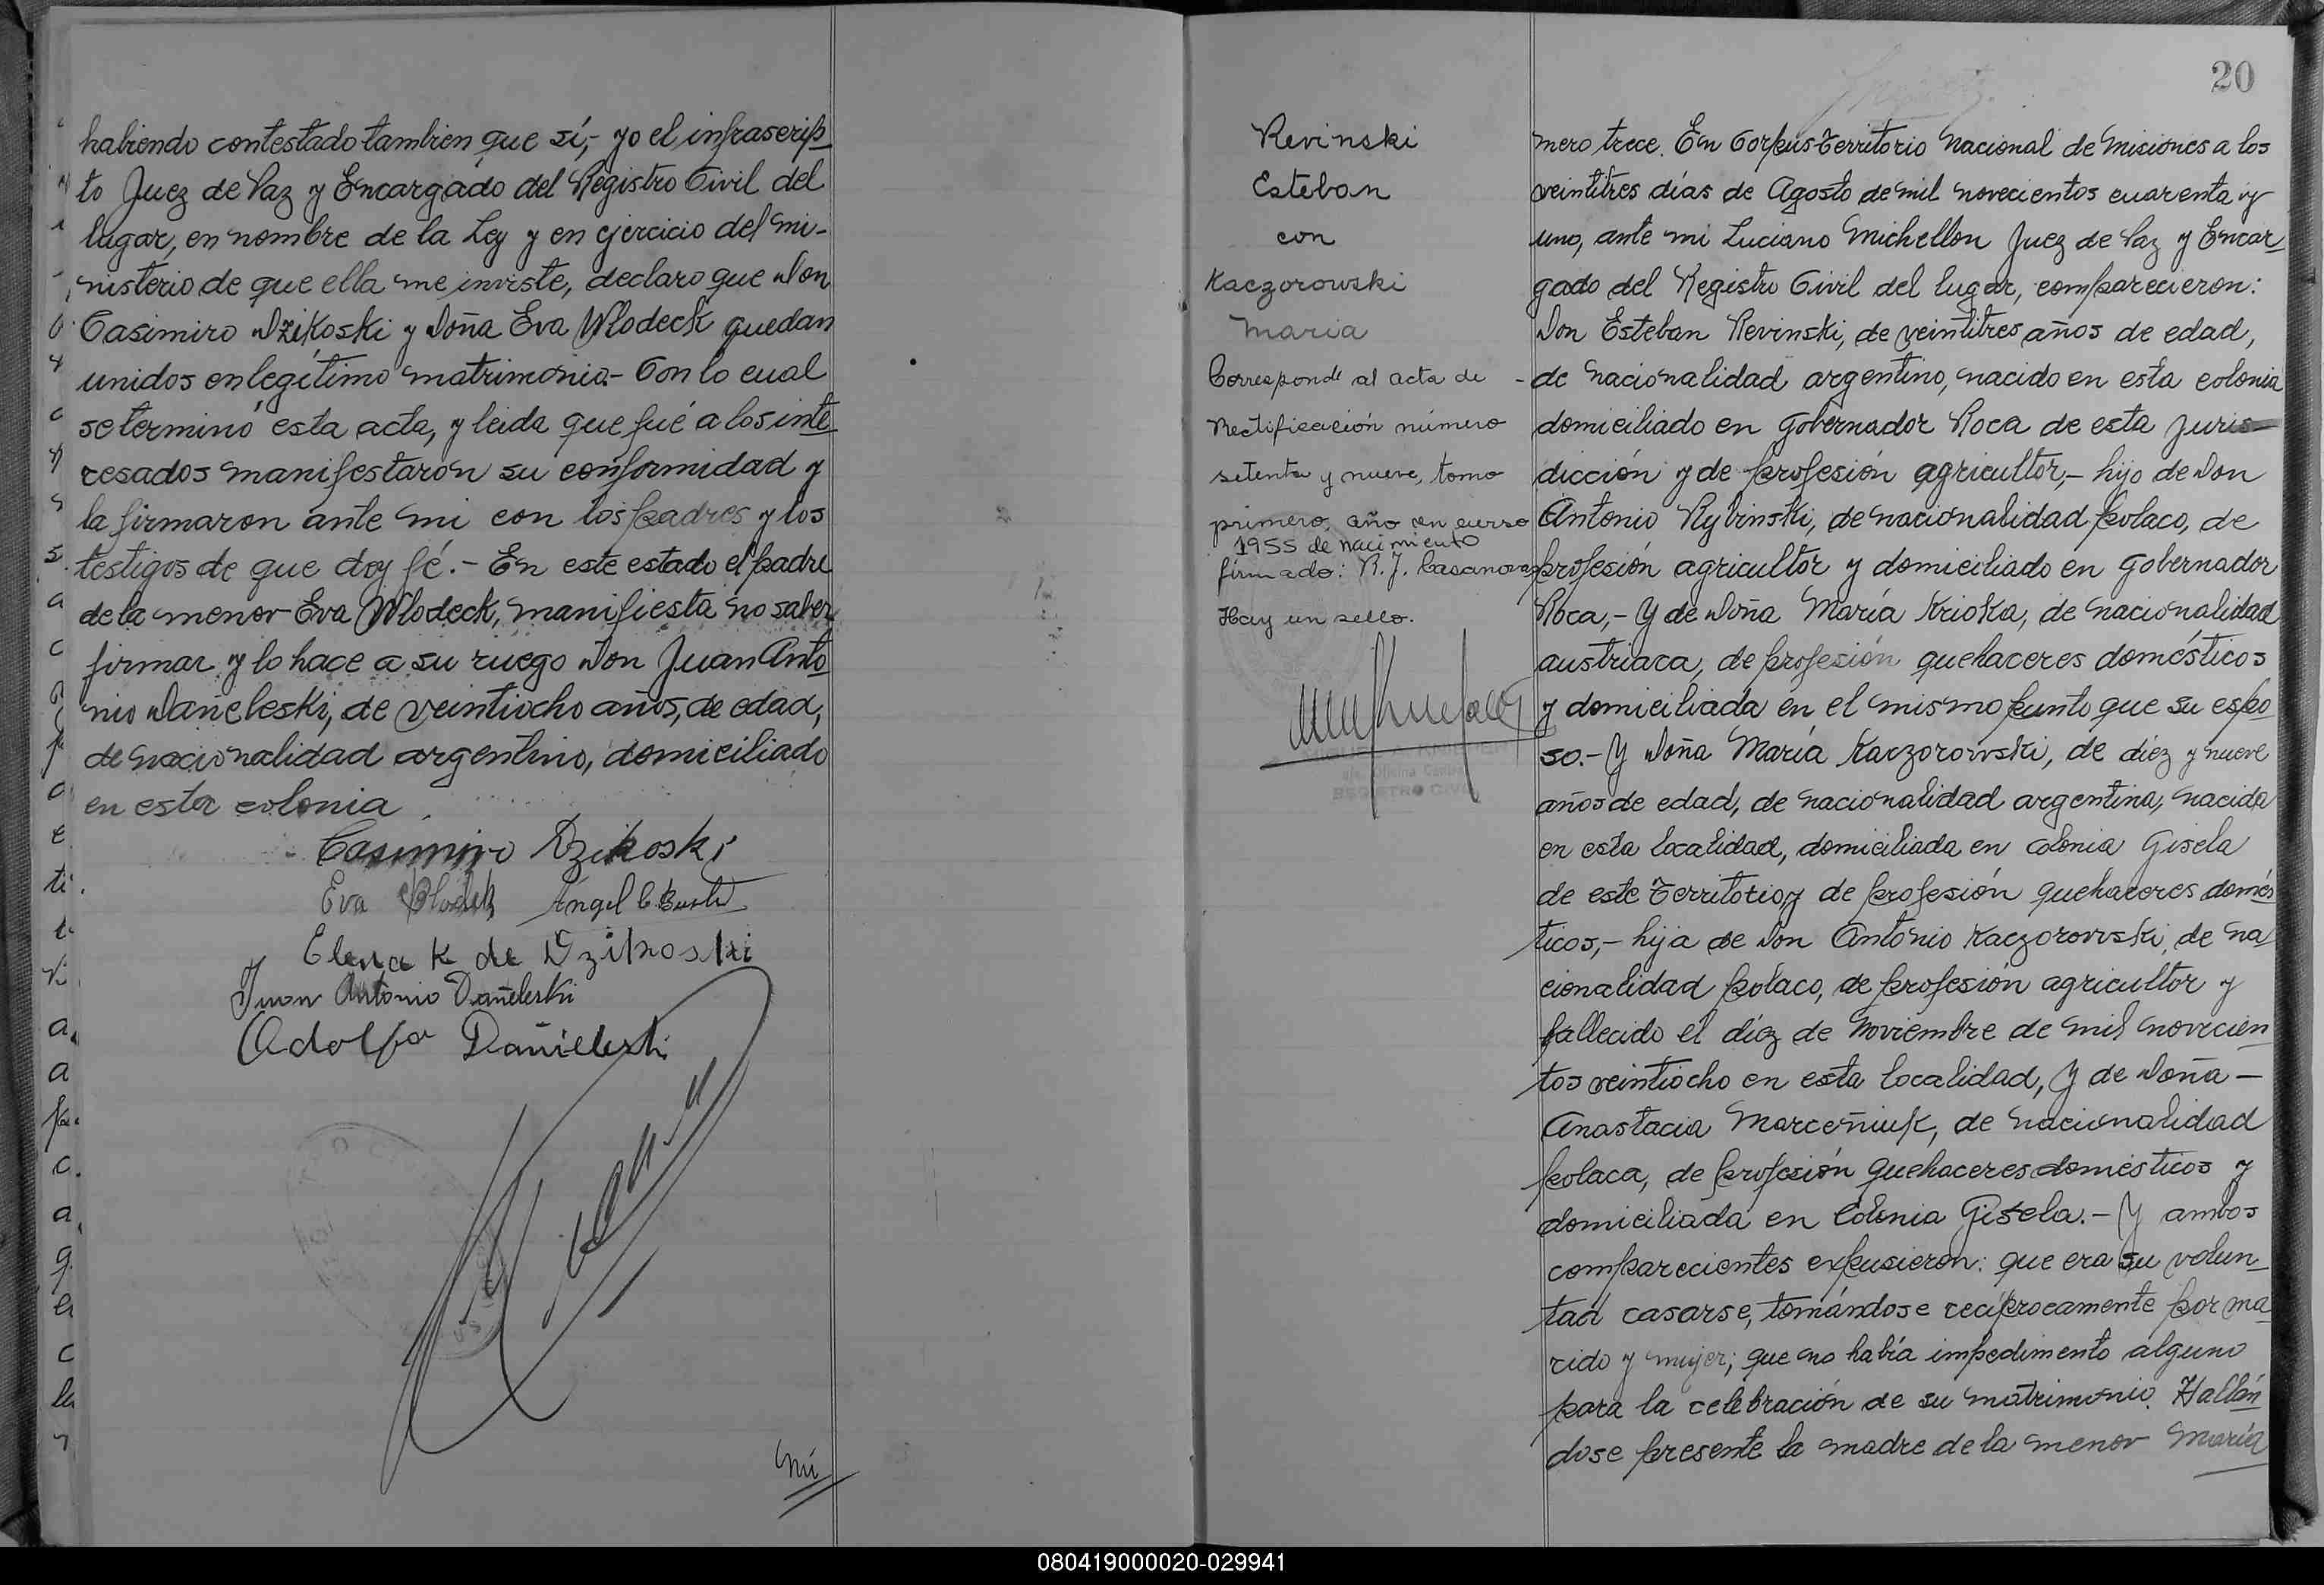 habiendo contestado tambien que sí,- yo el infrascrip
to Juez de Paz y Encargado del Registro Civil del
lugar, en nombre de la Ley y en ejercicio del mi-
nisterio de que ella me inviste, declaro que Don
Casimiro Dzikoski y Doña Eva Wlodeck quedan
unidos en legítimo matrimonio.- Con lo cual
se terminó esta acta, y leida que fué a los inte
resados manifestaron su conformidad y
la firmaron ante mi con los padres y los
testigos de que doy fé.- En este estado el padre
de la menor Eva Wlodeck, manifiesta no saber
firmar y lo hace a su ruego Don Juan Anto
nio Dañeleski, de veintiocho años, de edad,
de nacionalidad argentino, domiciliado
en esta colonia
Casimiro Dzikoski
Eva
Angel C.
Elena K de Dzikoski
Juan Antonio Dañeleski
Adolfo Dañieleski
mi
20
Revinski
Esteban
con
Kaczorowski
Maria
Corresponde al acta de
Rectificación número
setenta y nueve, tomo
primero, año en curso
1955 de nacimiento
firmado: R. J. Casanovas
Hay un sello.
Oficina Central
REGISTRO CIVIL
mero trece. En Corpus Territorio Nacional de Misiones a los
veintitres días de Agosto de mil novecientos cuarenta y
uno, ante mi Luciano Michellon Juez de Paz y Encar
gado del Registro Civil del lugar, comparecieron:
Don Esteban Revinski, de veintitres años de edad,
-de nacionalidad argentino, nacido en esta colonia
domiciliado en Gobernador Roca de esta juris-
dicción y de profesión agricultor,- hijo de Don
Antonio Rybinski, de nacionalidad polaco, de
profesión agricultor y domiciliado en Gobernador
Roca,- Y de Doña María Krioka, de nacionalidad
austriaca, de profesión quehaceres domésticos
y domiciliada en el mismo punto que su espo
so.- Y Doña María Kaczorovvski, de diez y nueve
años de edad, de nacionalidad argentina, nacida
en esta localidad, domiciliada en colonia Gisela
de este Territorio y de profesión quehaceres domés
ticos,- hija de Don Antonio Kaczorovvski, de na
cionalidad polaco, de profesión agricultor y
fallecido el diez de Noviembre de mil novecien
tos veintiocho en esta localidad, Y de Doña -
Anastacia Marceñiuk, de nacionalidad
polaca, de profesión quehaceres domésticos y
domiciliada en Colonia Gisela.- Y ambos
comparecientes expusieron: que era su volun
tad casarse, tomándose recíprocamente por ma
rido y mujer; que no había impedimento alguno
para la celebración de su matrimonio. Hallán
dose presente la madre de la menor María
080419000020-029941